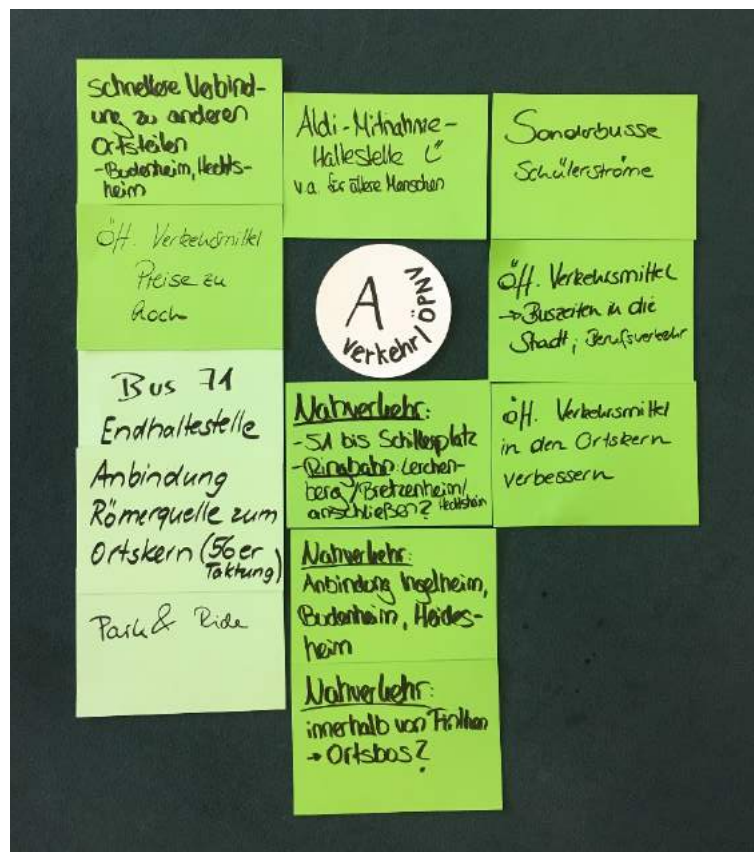 schnellere Verbind-
ung zu anderen
Ortsteilen
-Budenheim, Hechts-
heim
Öff. Verkehrsmittel
Preise zu
hoch
Bus 71
Endhaltestelle
Anbindung
Römerquelle zum
Ortskern (56er
Taktung)
Park & Ride
Aldi-Mitnahme-
Haltestelle Ü
v.a. für ältere Menschen
A
Verkehr/ÖPNV
Nahverkehr:
-51 bis Schillerplatz
-Ringbahn: Lerchen-
berg/Bretzenheim/
anschließen? Hechtsheim
Nahverkehr:
Anbindung Ingelheim,
Budenheim, Heides-
heim
Nahverkehr:
innerhalb von Finthen
→ Ortsbus?
Sonderbusse
Schülerströme
Öff. Verkehrsmittel
→ Buszeiten in die
Stadt, Berufsverkehr
öff. Verkehrsmittel
in den Ortskern
verbessern